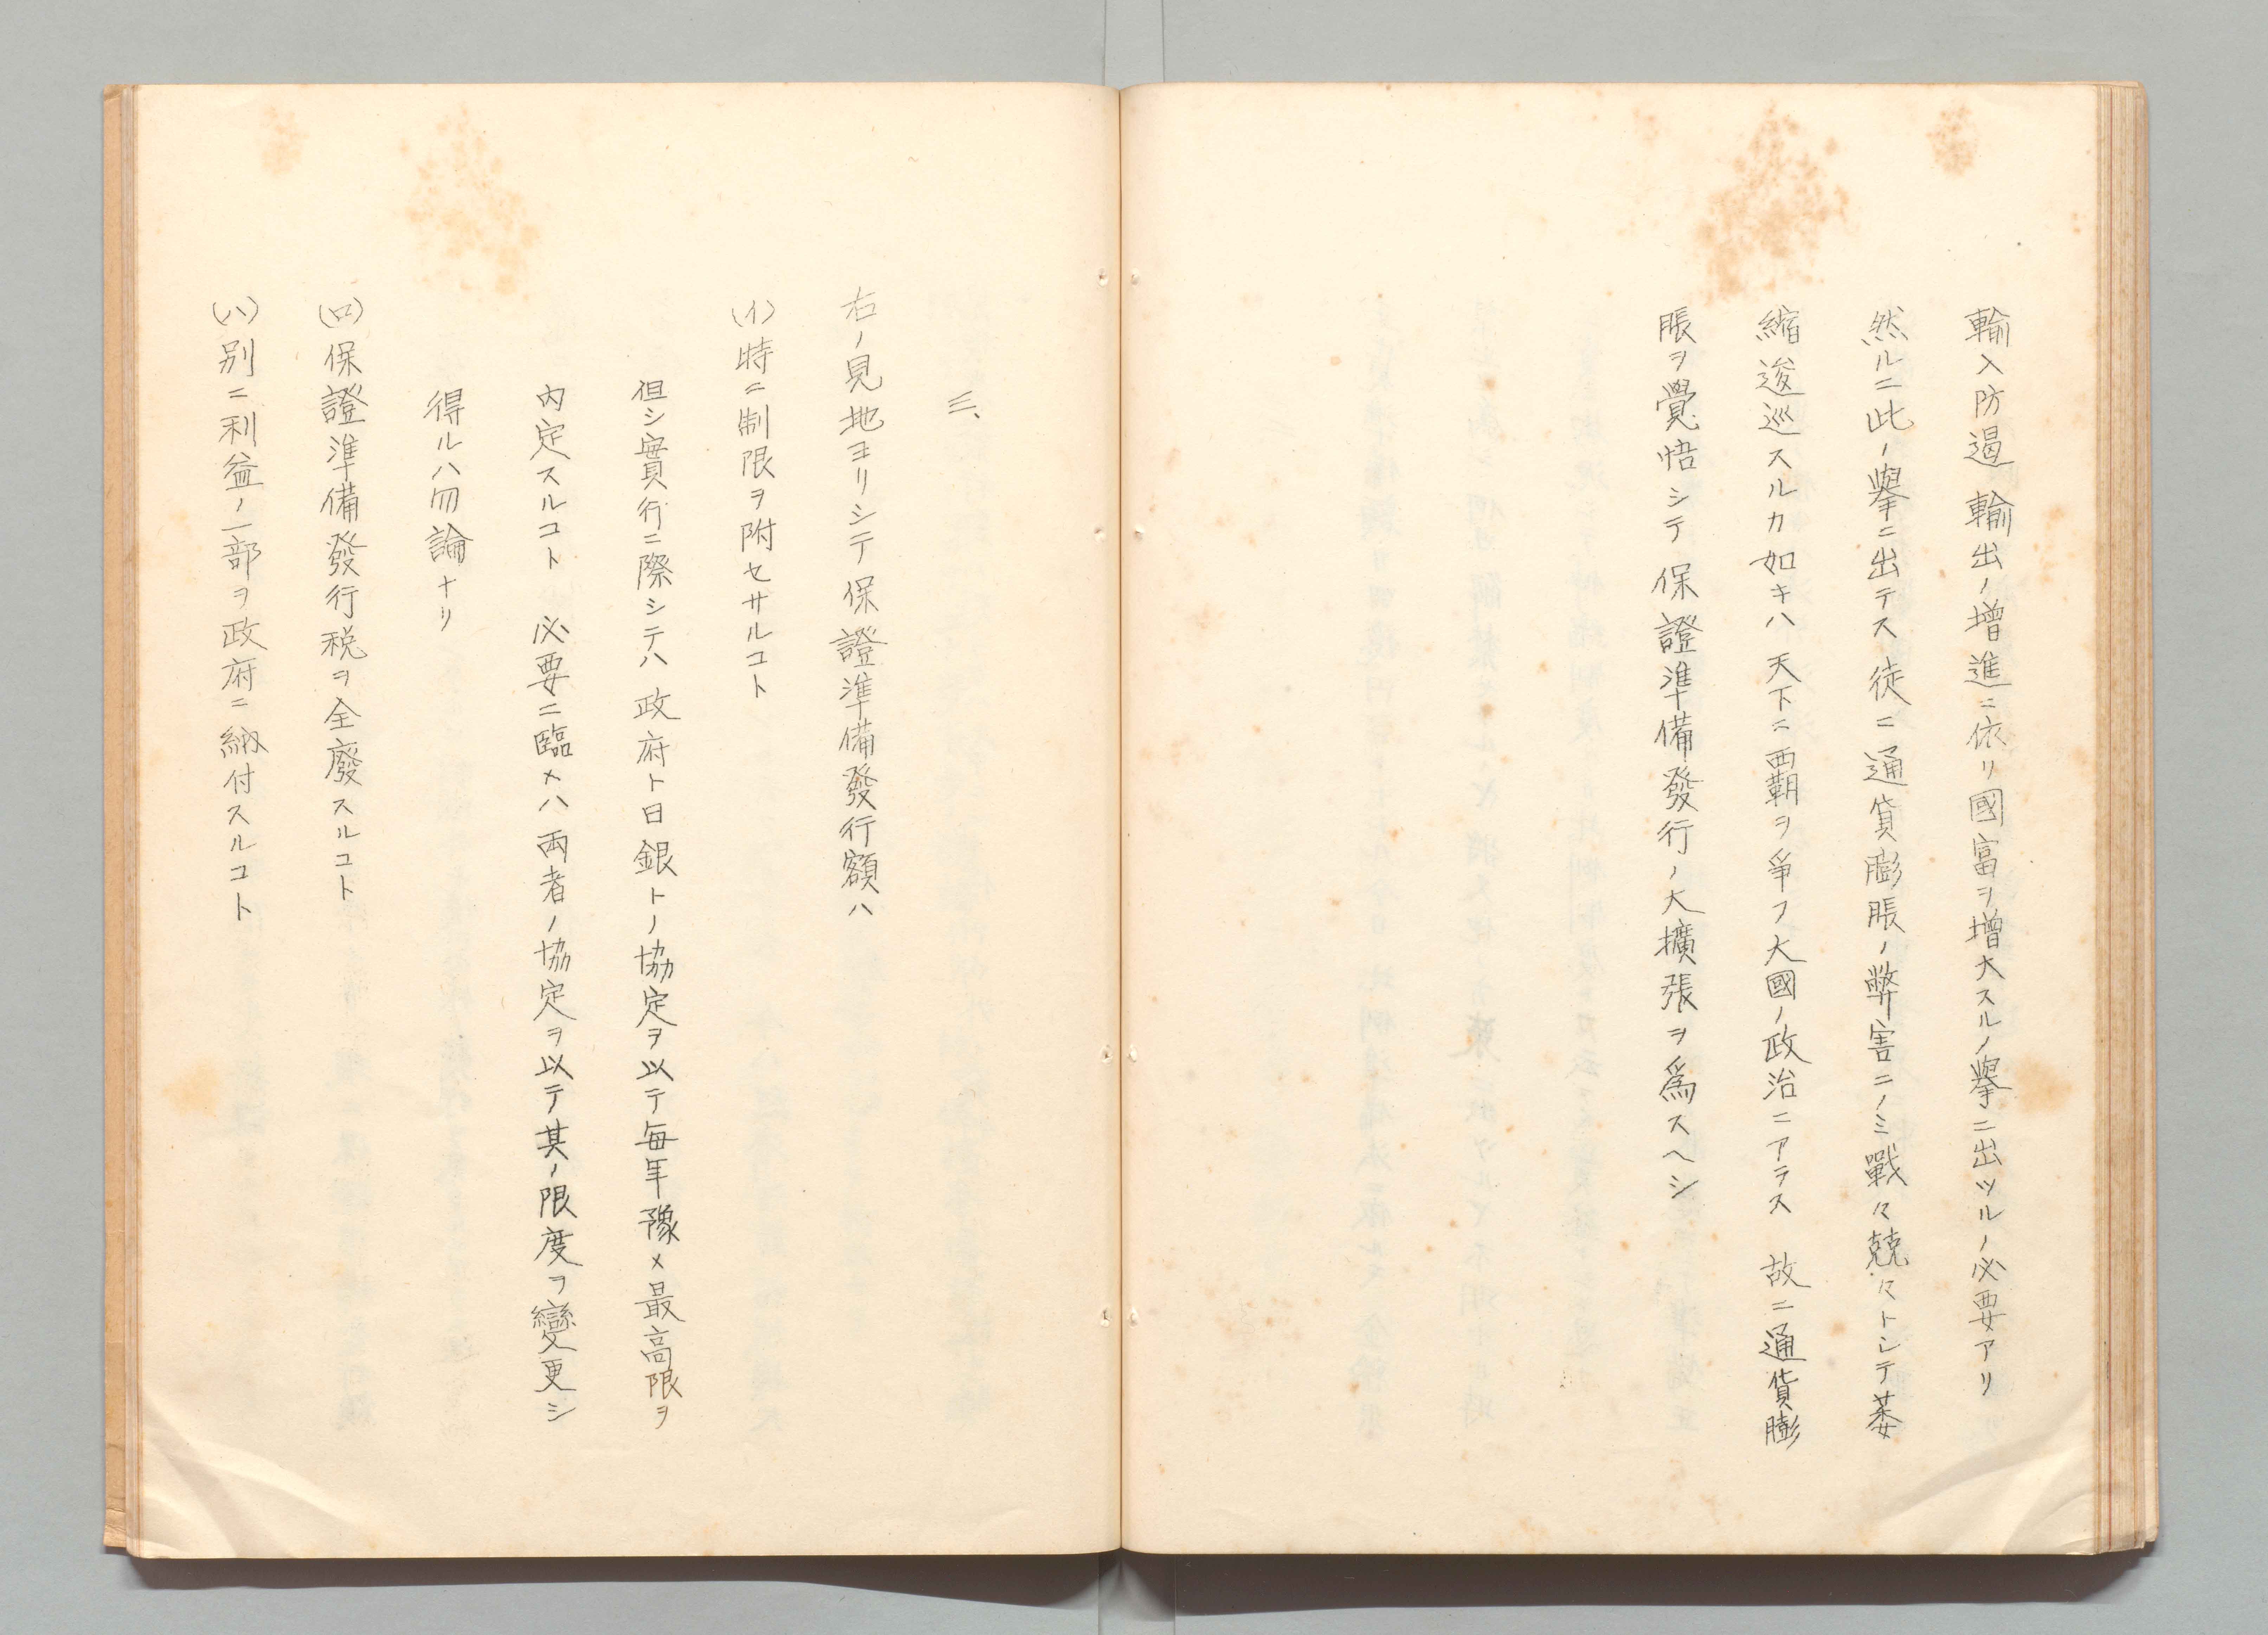 輸入防遏輸出ノ增進ニ依リ國富ヲ增大スルノ擧ニ出ツルノ必要アリ
然ルニ此ノ擧ニ出テス徒ニ通貨膨脹ノ弊害ニノミ戰々兢々トシテ萎
縮逡巡スルカ如キハ天下ニ覇ヲ爭フ大國ノ政治ニアラス 故ニ通貨膨
脹ヲ覺悟シテ保證準備發行ノ大擴張ヲ爲スヘシ
三、
右ノ見地ヨリシテ保證準備發行額ハ
(イ)特ニ制限ヲ附セサルコト
但シ實行ニ際シテハ政府ト日銀トノ協定ヲ以テ毎年豫メ最高限ヲ
內定スルコト 必要ニ臨メハ兩者ノ協定ヲ以テ其ノ限度ヲ變更シ
得ルハ勿論ナリ
(ロ)保證準備發行税ヲ全廢スルコト
(ハ)別ニ利益ノ一部ヲ政府ニ納付スルコト